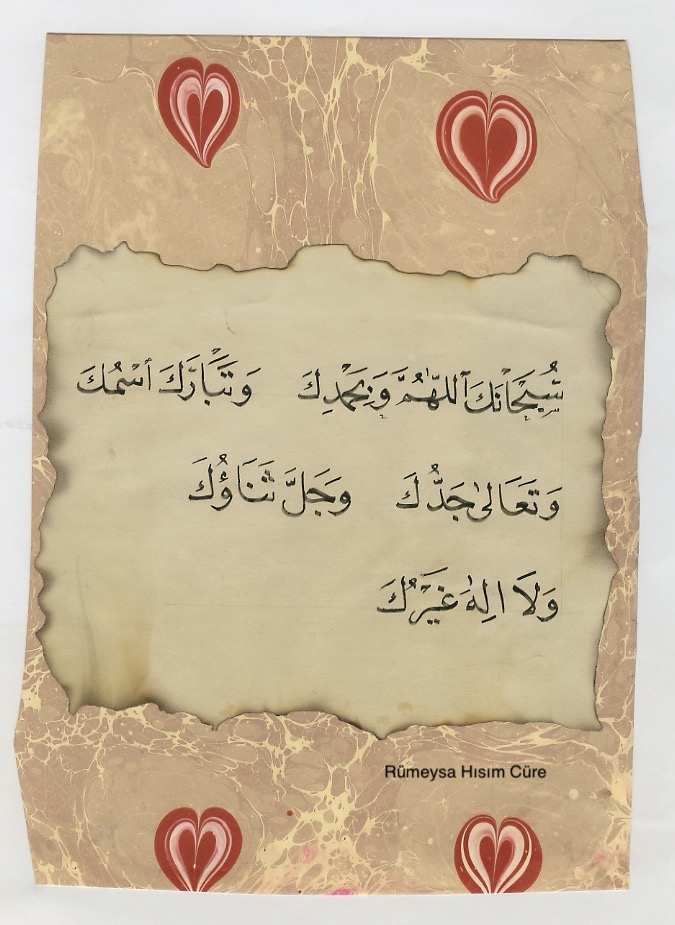 سُبْحَانَكَ ٱللّٰهُمَّ وَبِحَمْدِكَ وَتَبَارَكَ ٱسْمُكَ
وَتَعَالٰى جَدُّكَ وَجَلَّ ثَنَاؤُكَ
وَلَا اِلٰهَ غَيْرُكَ
Rümeysa Hısım Cüre